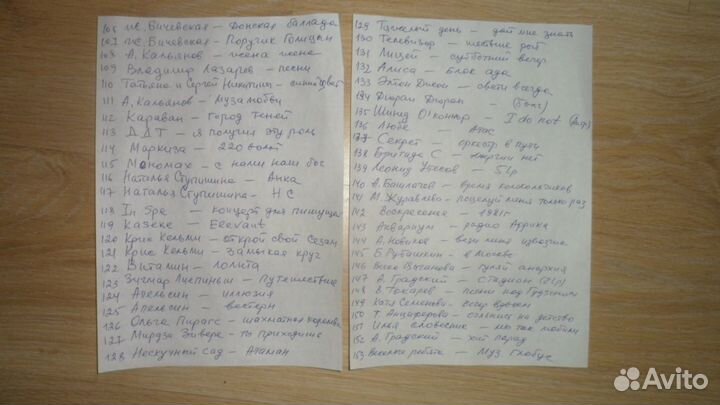 106 Ж. Бичевская — Донская баллада
107 Ж. Бичевская — Поручик Голицын
108 А. Кальянов — жена жена
109 Владимир Лазарев — песни
110 Татьяна и Сергей Никитины —
111 А. Кальянов — Муза любви
112 Караван — город теней
113 ДДТ — я получил эту роль
114 Маркиза — 220 вольт
115 Мономах — с нами наш бог
116 Наталья Ступишина — Анка
117 Наталья Ступишина — НС
118 In Spe — концерт для пишущей
119 Казеке — Elevant
120 Крис Кельми — открой свой Сезам
121 Крис Кельми — Замыкая круг
122 Витамин — Лолита
123 Зигмар Лиепиньш — Путешествие
124 Апельсин — иллюзия
125 Апельсин — вестерн
126 Ольга Пирагс — шахматная королева
127 Мирдза Зивере — ты приходишь
128 Нескучный сад — Атаман
129 Тяжелый день — дай мне знать
130 Телевизор — шествие рыб
131 Лицей — субботний вечер
132 Алиса — Блок ада
133 Элтон Джон — свети всегда
134 Дюран Дюран —
135 Шинед О'Коннор — I do not
136 Любе — Атас
137 Секрет — оркестр в пути
138 Бригада С — нергии нет
139 Леонид Утесов — 5 Lp
140 А. Башлачев — время колокольчиков
141 М. Журавлева — поцелуй меня только раз
142 Воскресенье — 1981г
143 Аквариум — радио Африка
144 А. Новиков — вези меня извозчик
145 Б. Рубашкин — в Москве
146 — гуляй анархия
147 А. Градский — стадион (2Lp)
148 В. Токарев —
149 Катя Семенова —
150 Т. Анциферова — оглянись на детство
151 Илья Словесник — мы так любим
152 А. Градский — хит парад
153 Веселые ребята — Муз глобус
Avito